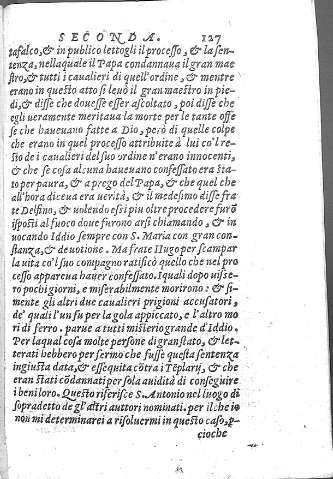 SECONDA. 127
tafalco, & in publico lettogli il processo, & la sen-
tenza, nellaquale il Papa condannaua il gran mae
stro, & tutti i caualieri di quell'ordine, & mentre
erano in questo atto si leuò il gran maestro in pie-
di, & disse che douesse esser ascoltato, poi disse che
egli ueramente meritaua la morte per le tante offe
se che haueuano fatte a Dio, però di quelle colpe
che erano in quel processo attribuite à lui co'l re-
sto de i caualieri del suo ordine n'erano innocenti,
& che se cosa alcuna haueuano confessato era sta-
to per paura, & a prego del Papa, & che quel che
all'hora diceua era uerità, & il medesimo disse fra
te Delfino, & uolendo essi piu oltre procedere furō
isposti al fuoco doue furono arsi chiamando, & in
uocando Iddio sempre con S. Maria con gran con-
stanza, & deuotione. Ma frate Hugo per scampar
la uita co'l suo compagno ratificò quello che nel pro
cesso appareua hauer confessato. I quali dopo uisse-
ro pochi giorni, e miserabilmente morirono: & si-
mente gli altri due caualieri prigioni accusatori,
de' quali l'un fu per la gola appiccato, e l'altro mo
ri di ferro. parue a tutti misterio grande d'Iddio.
Per laqual cosa molte persone di gran stato, & let-
terati hebbero per fermo che fusse questa sentenza
ingiusta data, & essequita cōtra i Tēplarÿ, & che
eran stati cōdannati per sola auidità di conseguire
i beni loro. Questo riferisce S. Antonio nel luogo di
sopradetto de gl'altri auttori nominati. per il che io
non mi determinarei a risoluermi in questo caso, p-
cioche